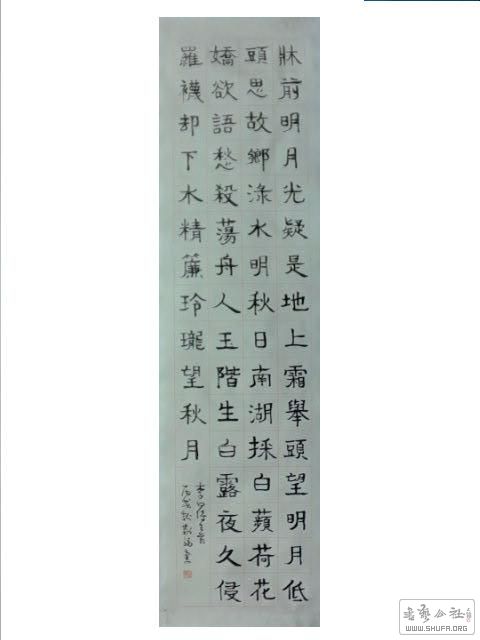 牀前明月光疑是地上霜舉頭望明月低
頭思故鄉淥水明秋日南湖採白蘋荷花
嬌欲語愁殺蕩舟人玉階生白露夜久侵
羅襪却下水精簾玲瓏望秋月
書藝公社
WWW.SHUFA.ORG